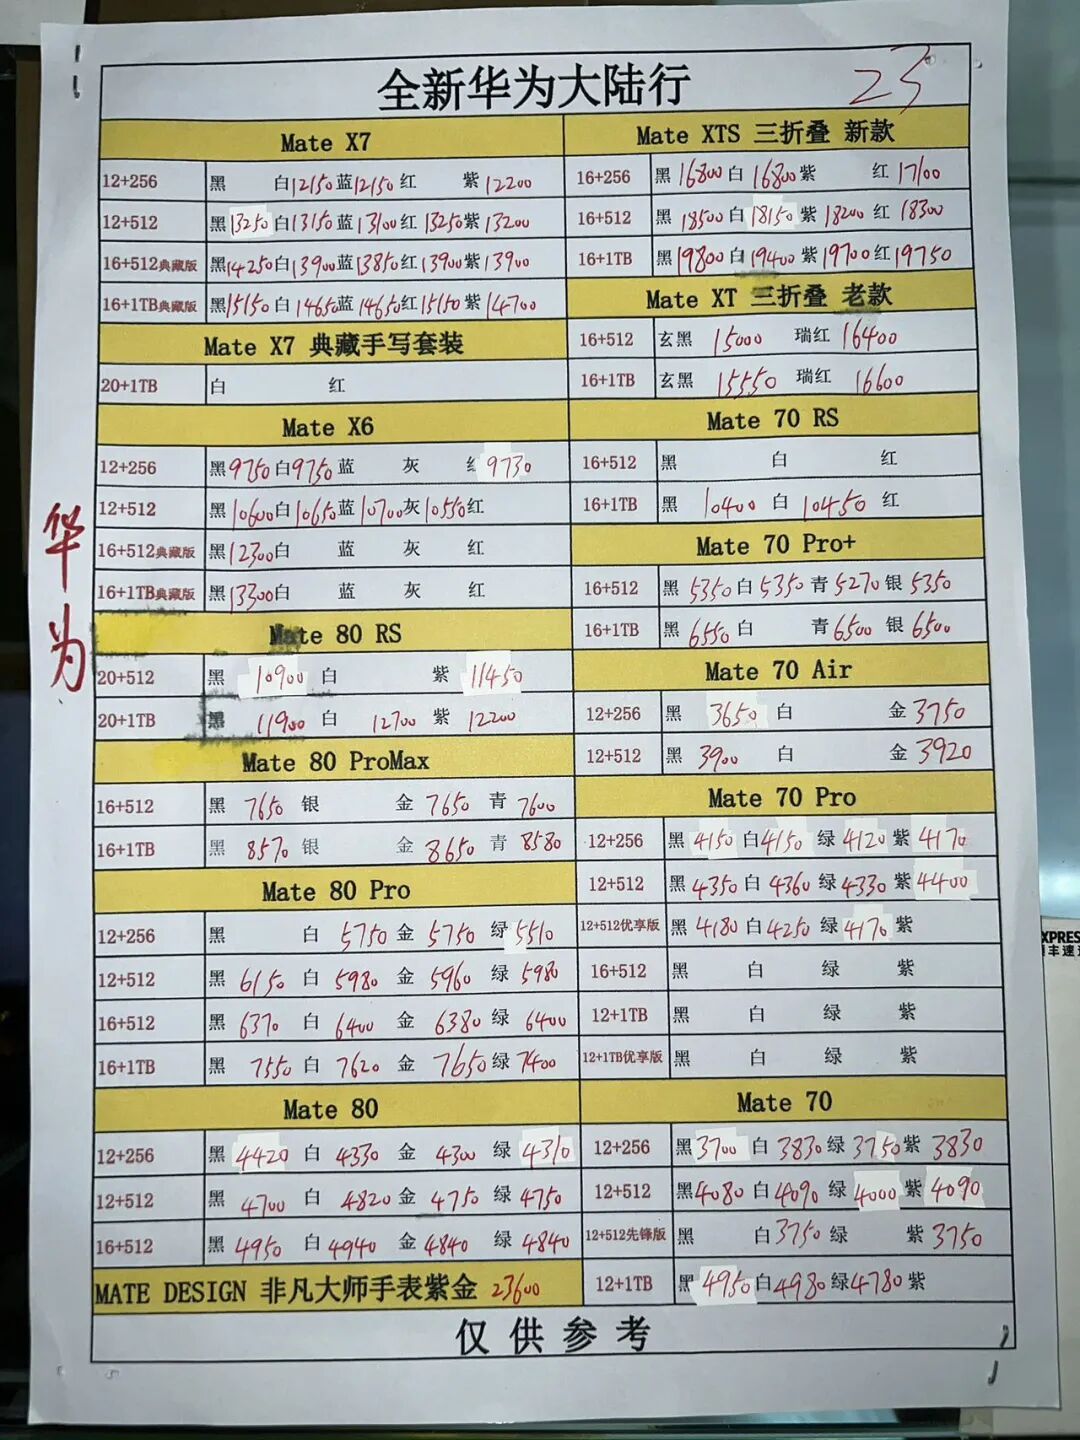 全新华为大陆行 25
华为
Mate X7
12+256 黑 白12150蓝12150红 紫12200
12+512 黑13250白13150蓝13100红13250紫13200
16+512典藏版 黑14250白13900蓝13850红13900紫13900
16+1TB典藏版 黑15150白14650蓝14650红15150紫14700
Mate X7 典藏手写套装
20+1TB 白 红
Mate X6
12+256 黑9750白9750蓝 灰 9730
12+512 黑10600白10650蓝10700灰10550红
16+512典藏版 黑12300白 蓝 灰 红
16+1TB典藏版 黑13300白 蓝 灰 红
Mate 80 RS
20+512 黑 10900 白 紫11450
20+1TB 黑 11900 白 12700 紫 12200
Mate 80 ProMax
16+512 黑 7650 银 金 7650 青 7600
16+1TB 黑 8570 银 金 8650 青 8580
Mate 80 Pro
12+256 黑 白 5750 金 5750 绿 5510
12+512 黑 6150 白 5980 金 5960 绿 5980
16+512 黑 6370 白 6400 金 6380 绿 6400
16+1TB 黑 7550 白 7620 金 7650 绿 7400
Mate 80
12+256 黑 4420 白 4330 金 4300 绿 4310
12+512 黑 4700 白 4820 金 4750 绿 4750
16+512 黑 4950 白 4940 金 4840 绿 4840
MATE DESIGN 非凡大师手表紫金 23600
Mate XTS 三折叠 新款
16+256 黑16800白 16800紫 红 17100
16+512 黑 18500 白 18150 紫 18200 红 18300
16+1TB 黑19800白 19400紫 19700红19750
Mate XT 三折叠 老款
16+512 玄黑 15000 瑞红 16400
16+1TB 玄黑 15550 瑞红 16600
Mate 70 RS
16+512 黑 白 红
16+1TB 黑 10400 白 10450 红
Mate 70 Pro+
16+512 黑 5350 白 5350 青 5270 银 5350
16+1TB 黑 6550 白 青 6500 银 6500
Mate 70 Air
12+256 黑 3650 白 金 3750
12+512 黑 3900 白 金 3920
Mate 70 Pro
12+256 黑 4150 白4150 绿 4120 紫 4170
12+512 黑 4350 白 4360 绿 4330 紫 4400
12+512优享版 黑 4180 白4250 绿 4170 紫
16+512 黑 白 绿 紫
12+1TB 黑 白 绿 紫
12+1TB优享版 黑 白 绿 紫
Mate 70
12+256 黑3700 白 3830绿 3750紫 3830
12+512 黑4080 白4090 绿 4000 紫 4090
12+512先锋版 黑 白3750 绿 紫 3750
12+1TB 黑 4950白4980绿4780紫
仅供参考